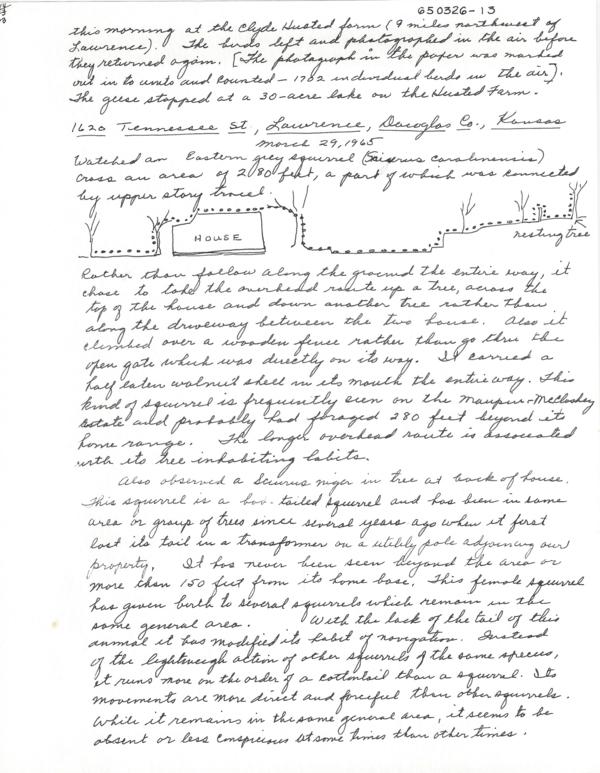 650326-13
this morning at the Clyde Husted farm (9 miles northwest of
Lawrence). The birds left and photographed in the air before
they returned again. [The photograph in the paper was marked
out in to units and counted - 1702 individual birds in the air].
The geese stopped at a 30-acre lake on the Husted Farm.
1620 Tennessee St, Lawrence, Douglas Co., Kansas
March 29, 1965
Watched an Eastern grey squirrel (Sciurus carolinensis)
cross an area of 280 feet, a part of which was connected
by upper story travel.
HOUSE
nesting tree
Rather than follow along the ground the entire way, it
chose to take the overhead route up a tree, across the
top of the house and down another tree rather than
along the driveway between the two house. Also it
climbed over a wooden fence rather than go thru the
open gate which was directly on its way. It carried a
half eaten walnut shell in its mouth the entire way. This
kind of squirrel is frequently seen on the Maupin-McCloskey
Estate and probably had foraged 280 feet beyond its
home range. The longer overhead route is associated
with its tree inhabiting habits.
Also observed a Sciurus niger in tree at back of house.
This squirrel is a tailed squirrel and has been in same
area or group of trees since several years ago when it first
lost its tail in a transformer on a utility pole adjoining our
property. It has never been seen beyond the area or
more than 150 feet from its home base. This female squirrel
has given birth to several squirrels which remain in the
same general area. With the lack of the tail of this
animal it has modified its habit of navigation. Instead
of the lightweigh action of other squirrels of the same species,
it runs more on the order of a cottontail than a squirrel. Its
movements are more direct and forceful than other squirrels.
While it remains in the same general area, it seems to be
absent or less conspicious at some times than other times.